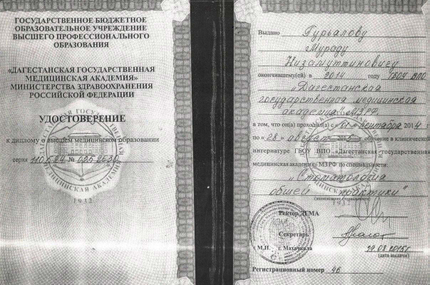 ГОСУДАРСТВЕННОЕ БЮДЖЕТНОЕ
ОБРАЗОВАТЕЛЬНОЕ УЧРЕЖДЕНИЕ
ВЫСШЕГО ПРОФЕССИОНАЛЬНОГО
ОБРАЗОВАНИЯ
«ДАГЕСТАНСКАЯ ГОСУДАРСТВЕННАЯ
МЕДИЦИНСКАЯ АКАДЕМИЯ»
МИНИСТЕРСТВА ЗДРАВООХРАНЕНИЯ
РОССИЙСКОЙ ФЕДЕРАЦИИ
УДОСТОВЕРЕНИЕ
к диплому о высшем медицинском образовании
серия №
1932
Выдано
Мураду
Низамутиновичу
окончившему(ей) в 2014 году ГБОУ ВПО
"Дагестанская
государственная медицинская
академия" МЗРФ
в том, что он(а) проходил(а) с сентября 2014
по "28"
интернатуре ГБОУ ВПО «Дагестанская государственная
медицинская академия» МЗРФ по специальности
"Стоматология
общей практики"
Ректор ДГМА
Секретарь
М.П. г. Махачкала
(дата выдачи)
Регистрационный номер 46